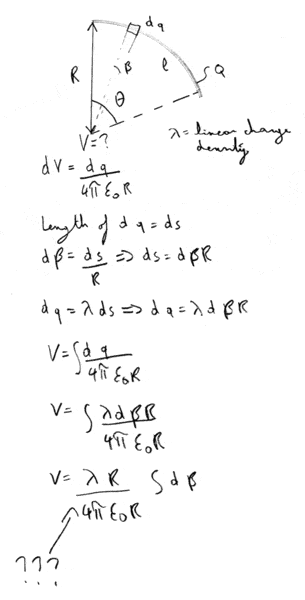 dq
R
β
l
Q
θ
V=?
λ = linear charge
density
dV = dq / 4π ε₀ R
Length of dq = ds
dβ = ds / R ⇒ ds = dβR
dq = λds ⇒ dq = λdβR
V = ∫ dq / 4π ε₀ R
V = ∫ λdβR / 4π ε₀ R
V = λR / 4π ε₀ R ∫ dβ
???
...